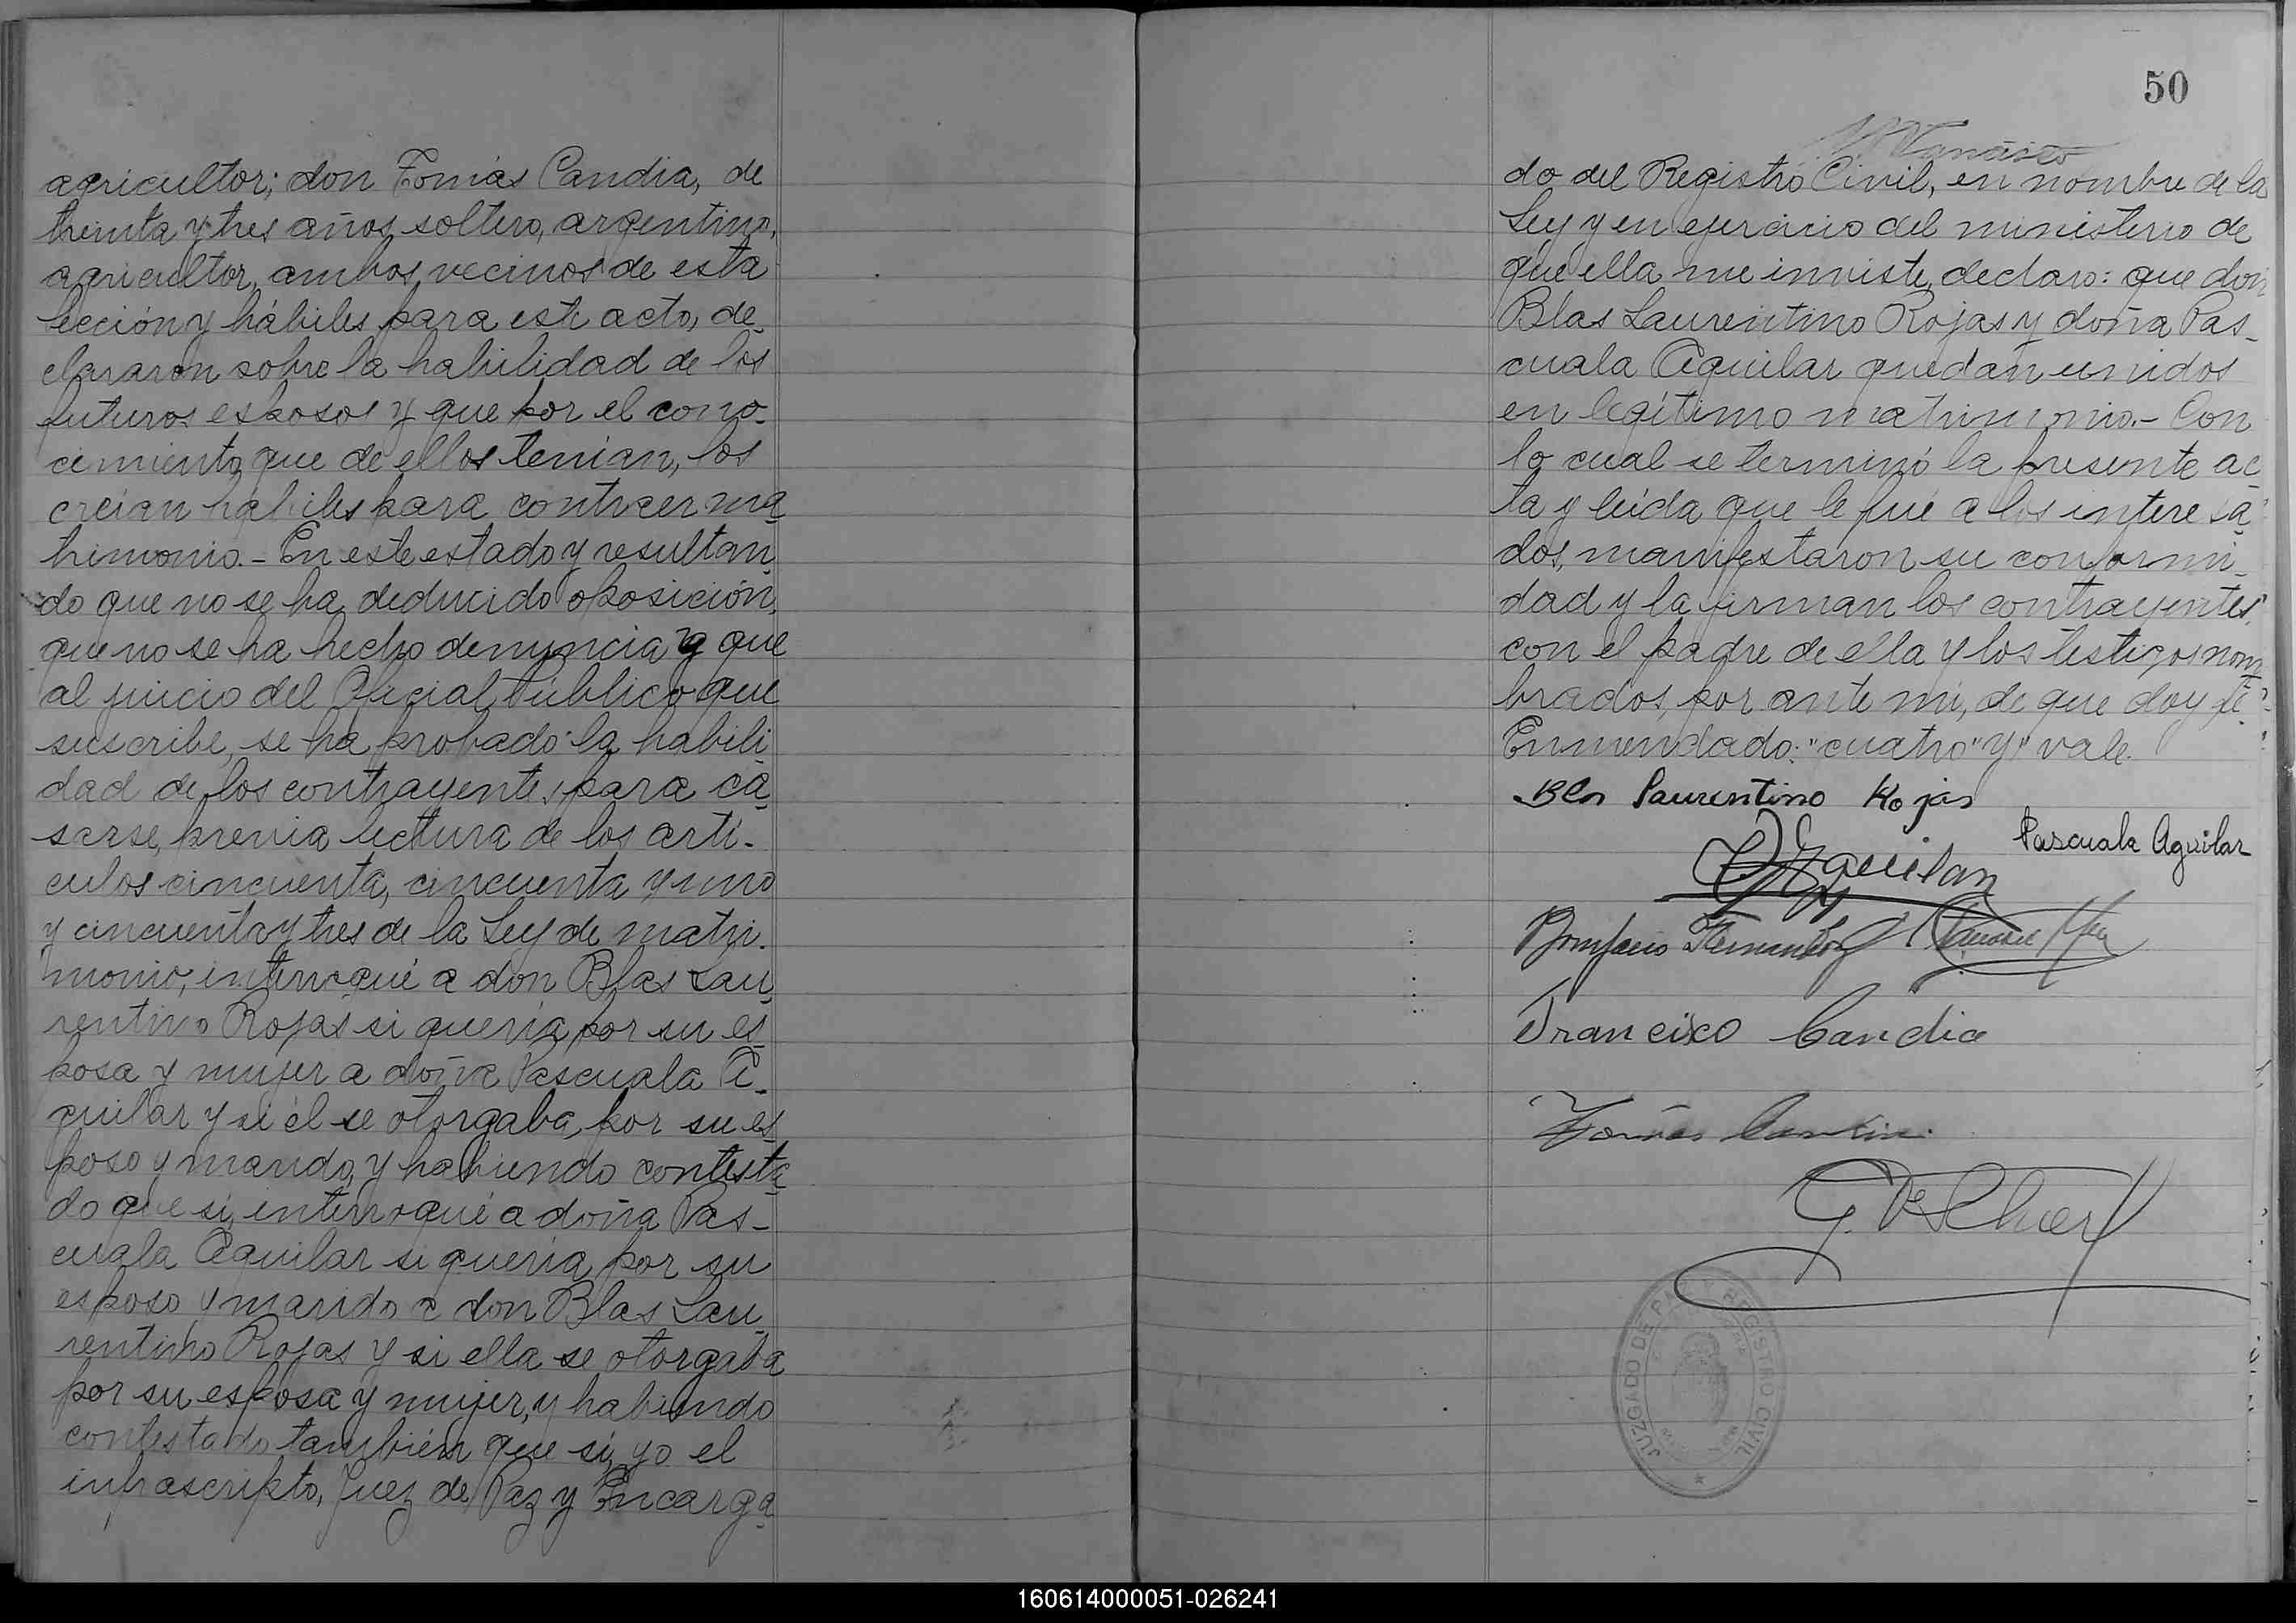 agricultor; don Tomás Candia, de
treinta y tres años, soltero, argentino,
agricultor, ambos vecinos de esta
sección y hábiles para este acto, de_
clararon sobre la habilidad de los
futuros esposos y que por el cono_
cimiento que de ellos tenían, los
creían hábiles para contraer ma_
trimonio.- En este estado y resultan_
do que no se ha deducido oposición,
que no se ha hecho denuncia y que
al juicio del Oficial Público que
suscribe, se ha probado la habili_
dad de los contrayentes para ca_
sarse, previa lectura de los artí-
culos cincuenta, cincuenta y uno
y cincuenta y tres de la Ley de matri-
monio, interrogué a don Blas Lau_
rentino Rojas si quería por su es_
posa y mujer a doña Pascuala A_
guilar y si él se otorgaba, por su es_
poso y marido, y habiendo contesta_
do que sí, interrogué a doña Pas_
cuala Aguilar si quería por su
esposo y marido a don Blas Lau_
rentino Rojas y si ella se otorgaba
por su esposa y mujer, y habiendo
contestado también que sí, yo el
infrascripto, Juez de Paz y Encarga_
50
do del Registro Civil, en nombre de la
Ley y en ejercicio del ministerio de
que ella me inviste, declaro: que don
Blas Laurentino Rojas y doña Pas_
cuala Aguilar quedan unidos
en legítimo matrimonio.- Con
lo cual se terminó la presente ac_
ta y leída que le fué a los interesa_
dos, manifestaron su conformi_
dad y la firman los contrayentes,
con el padre de ella y los testigos nom_
brados, por ante mí, de que doy fé.-
Enmendado: "cuatro" "y" vale.
Blas Laurentino Rojas
Pascuala Aguilar
Aguilar
Bonifacio Fernandez
Francisco Candia
Tomás Candia
JUZGADO DE PAZ Y REGISTRO CIVIL
160614000051-026241